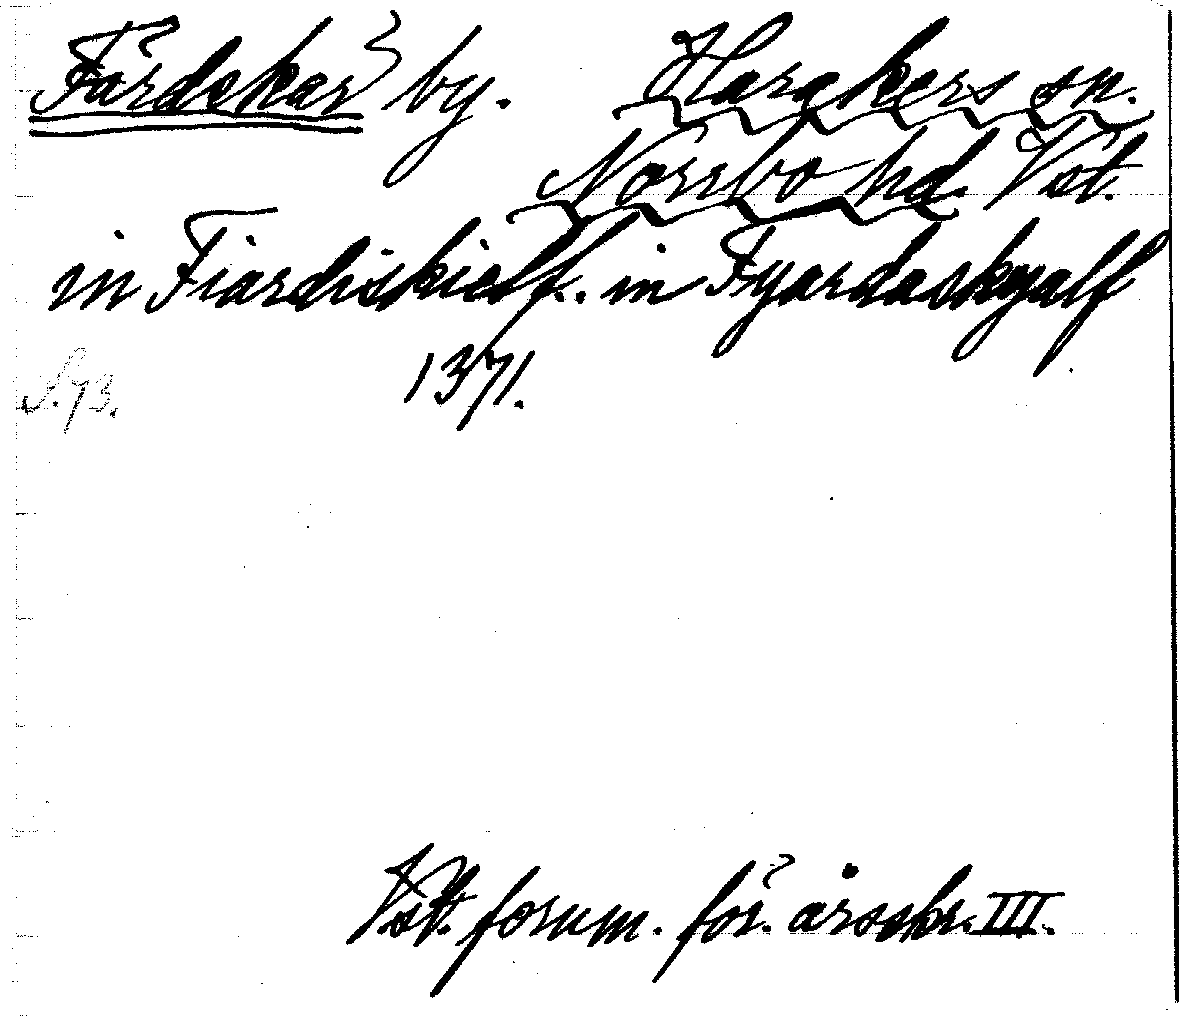 Färdskär by. Harakers sn.
Norrbo hd. Vst.
in Fiardiskielf. in Fyardaskyalf
S. 73. 1371.
Vstt. fornm. för. årsskr. III.